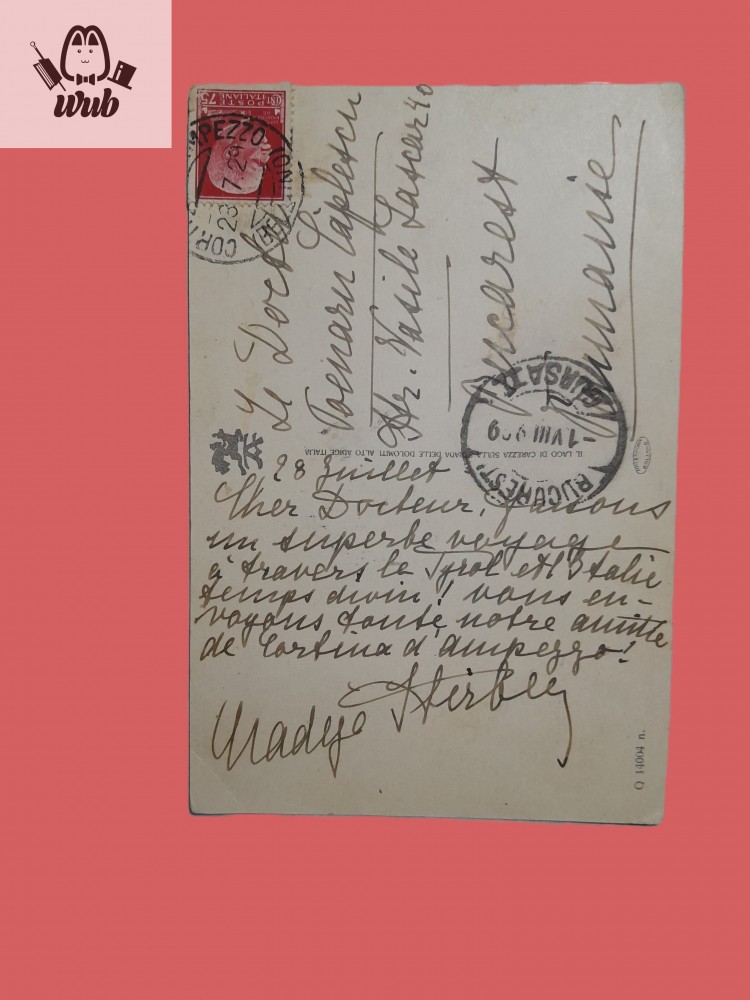 wub
POSTE ITALIANE
CENT 75
CORTINA D'AMPEZZO
28 7 29
(BELLUNO)
Le Docteur
Toenaru Caplescu
Str. Vasile Lascar 40
Bucarest
Roumanie
BUCUREȘTI
-1.VIII.929
BURSA
IL LAGO DI CAREZZA SULLA STRADA DELLE DOLOMITI ALTO ADIGE ITALIA
28 Juillet
Cher Docteur, faisons
un superbe voyage
à travers le Tyrol et l'Italie
temps divin! vous en-
voyons toute notre amitié
de Cortina d'Ampezzo!
Nadye Stirbey
Q 14004 n.